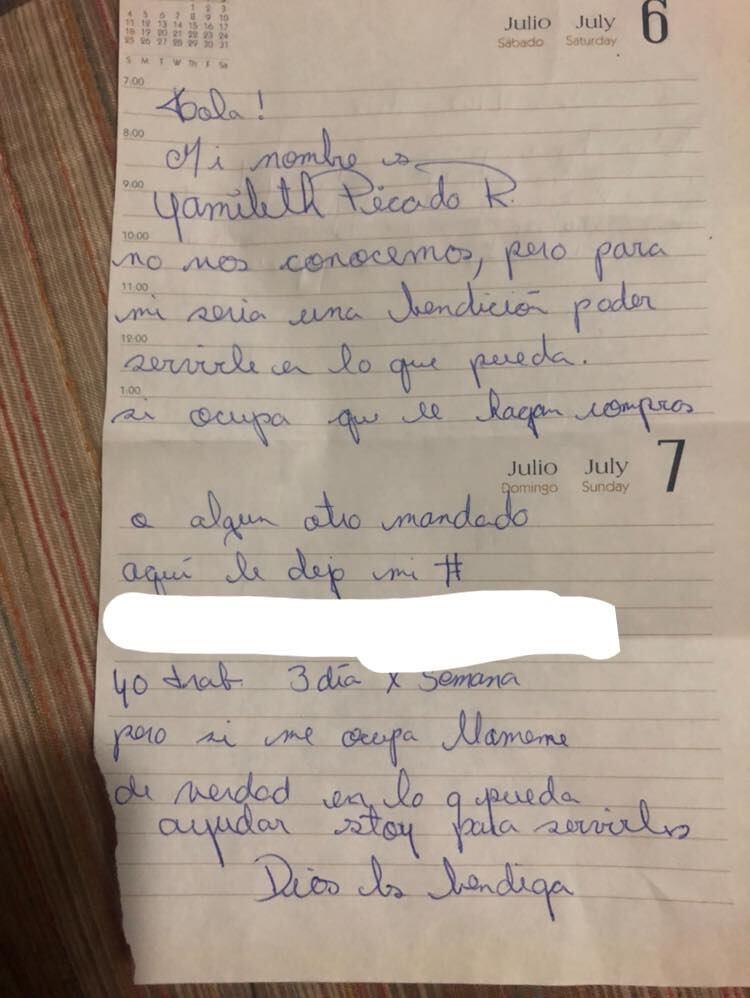 1 2 3
4 5 6 7 8 9 10
11 12 13 14 15 16 17
18 19 20 21 22 23 24
25 26 27 28 29 30 31
S M T W Th F Sa
Julio July 6
Sábado Saturday
7:00
Hola!
8:00
Mi nombre es
9:00
Yamileth Picado R.
10:00
no nos conocemos, pero para
11:00
mi seria una bendición poder
12:00
servirle en lo que pueda.
1:00
si ocupa que le hagan compras
Julio July 7
Domingo Sunday
o algun otro mandado
aquí le dejo mi #
yo trab. 3 día x semana
pero si me ocupa llameme
de verdad en lo q pueda
ayudar estoy para servirles
Dios los bendiga